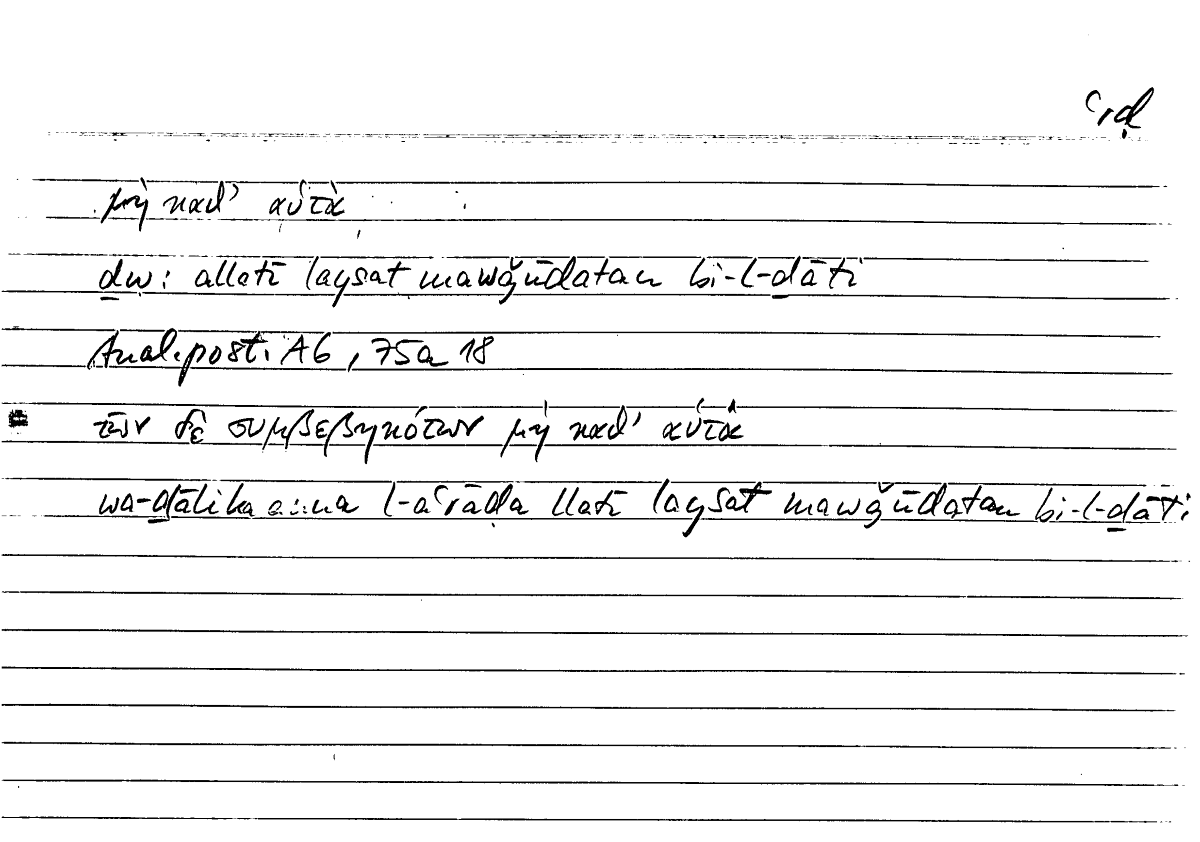 ʿrḍ
μὴ καθ’ αὑτὰ
ḏw: allatī laysat mawǧūdatan bi-l-ḏāti
Anal. post. A6, 75a 18
τῶν δὲ συμβεβηκότων μὴ καθ’ αὑτὰ
wa-ḏālika anna l-aʿrāḍa llatī laysat mawǧūdatan bi-l-ḏāti